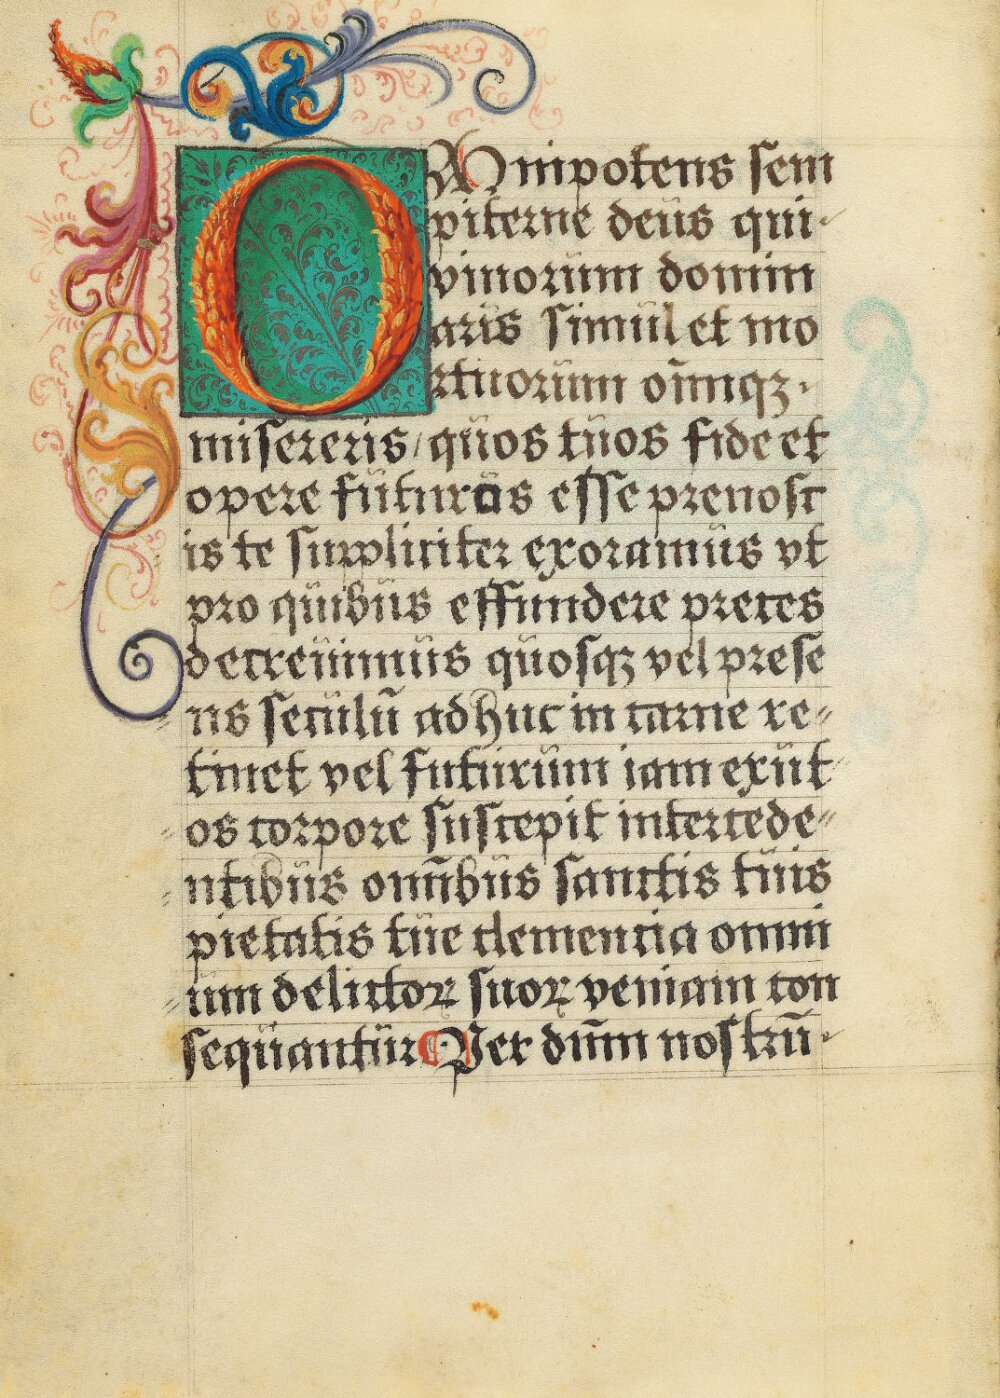 OMnipotens sem
piterne deus qui
vivorum domin
aris simul et mo
rtuorum om̄nqꝫ
misereris / quos tuos fide et
opere futuros esse prenosc
is te suppliciter exoramus vt
pro quibus effundere preces
decreuimus quosqꝫ vel prese
ns seculū adhuc in carne re-
tinet vel futurum iam exut
os corpore suscepit intercede-
ntibus omībus sanctis tuis
pietatis tue clementia omni
um delictoꝝ suoꝝ veniam con
sequantur Per dūm nostrū